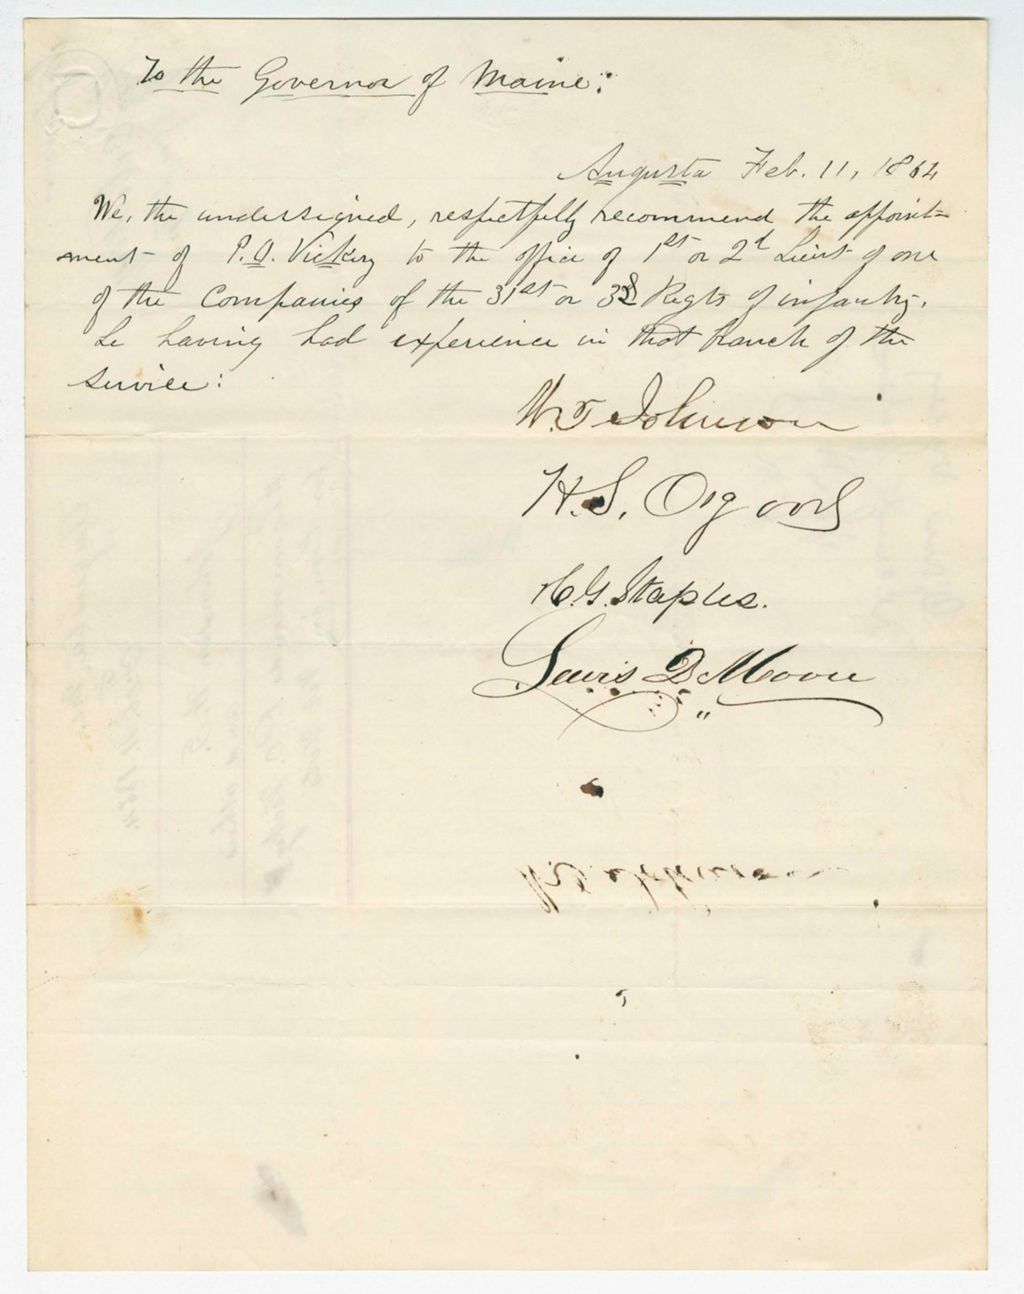 To the Governor of Maine:
Augusta Feb. 11, 1864
We, the undersigned, respectfully recommend the appoint-
ment of P. O. Vickery to the office of 1st or 2d Lieut of one
of the Companies of the 31st or 32 Regts of infantry,
he having had experience in that branch of the
service:
Wm T Johnson
H. S. Osgood
C. G. Staples.
Lewis D Moore